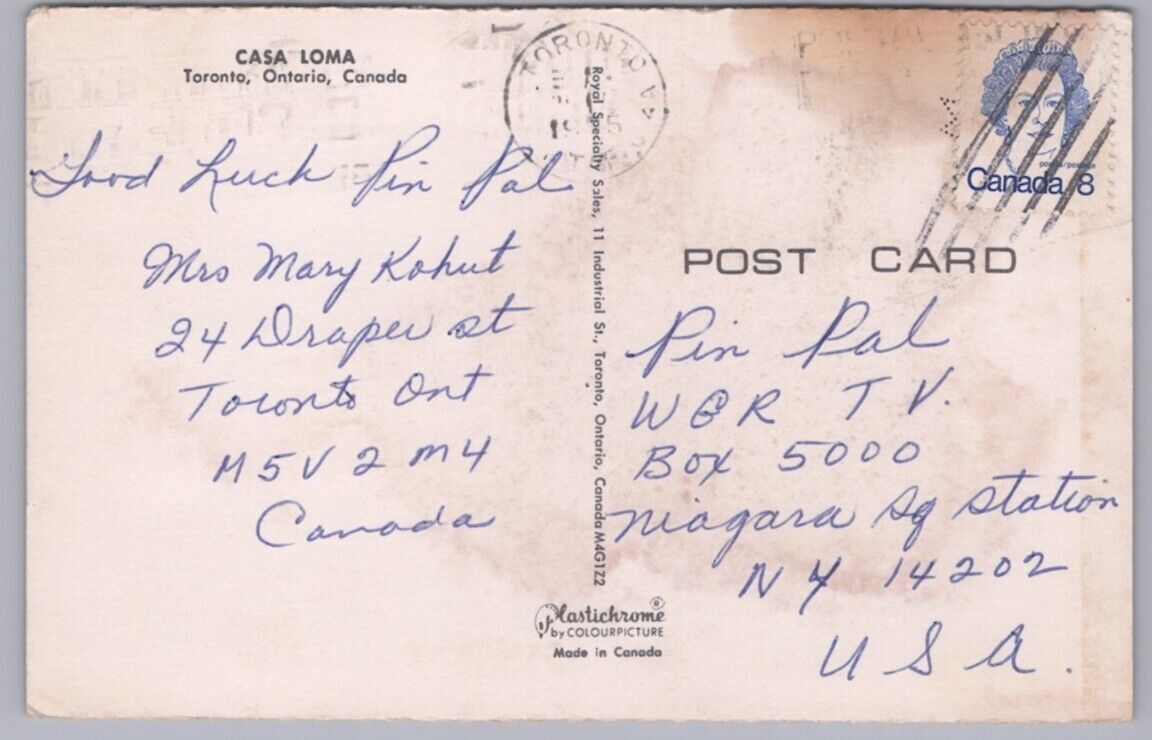 CASA LOMA
Toronto, Ontario, Canada
Good Luck Pin Pal
Mrs Mary Kohut
24 Draper st
Toronto Ont
M5V 2M4
Canada
Royal Specialty Sales, 11 Industrial St., Toronto, Ontario, Canada M4G1Z2
Plastichrome®
by COLOURPICTURE
Made in Canada
TORONTO
postes/postage
Canada 8
POST CARD
Pin Pal
WGR T V.
Box 5000
Niagara Sq Station
NY 14202
U S A.